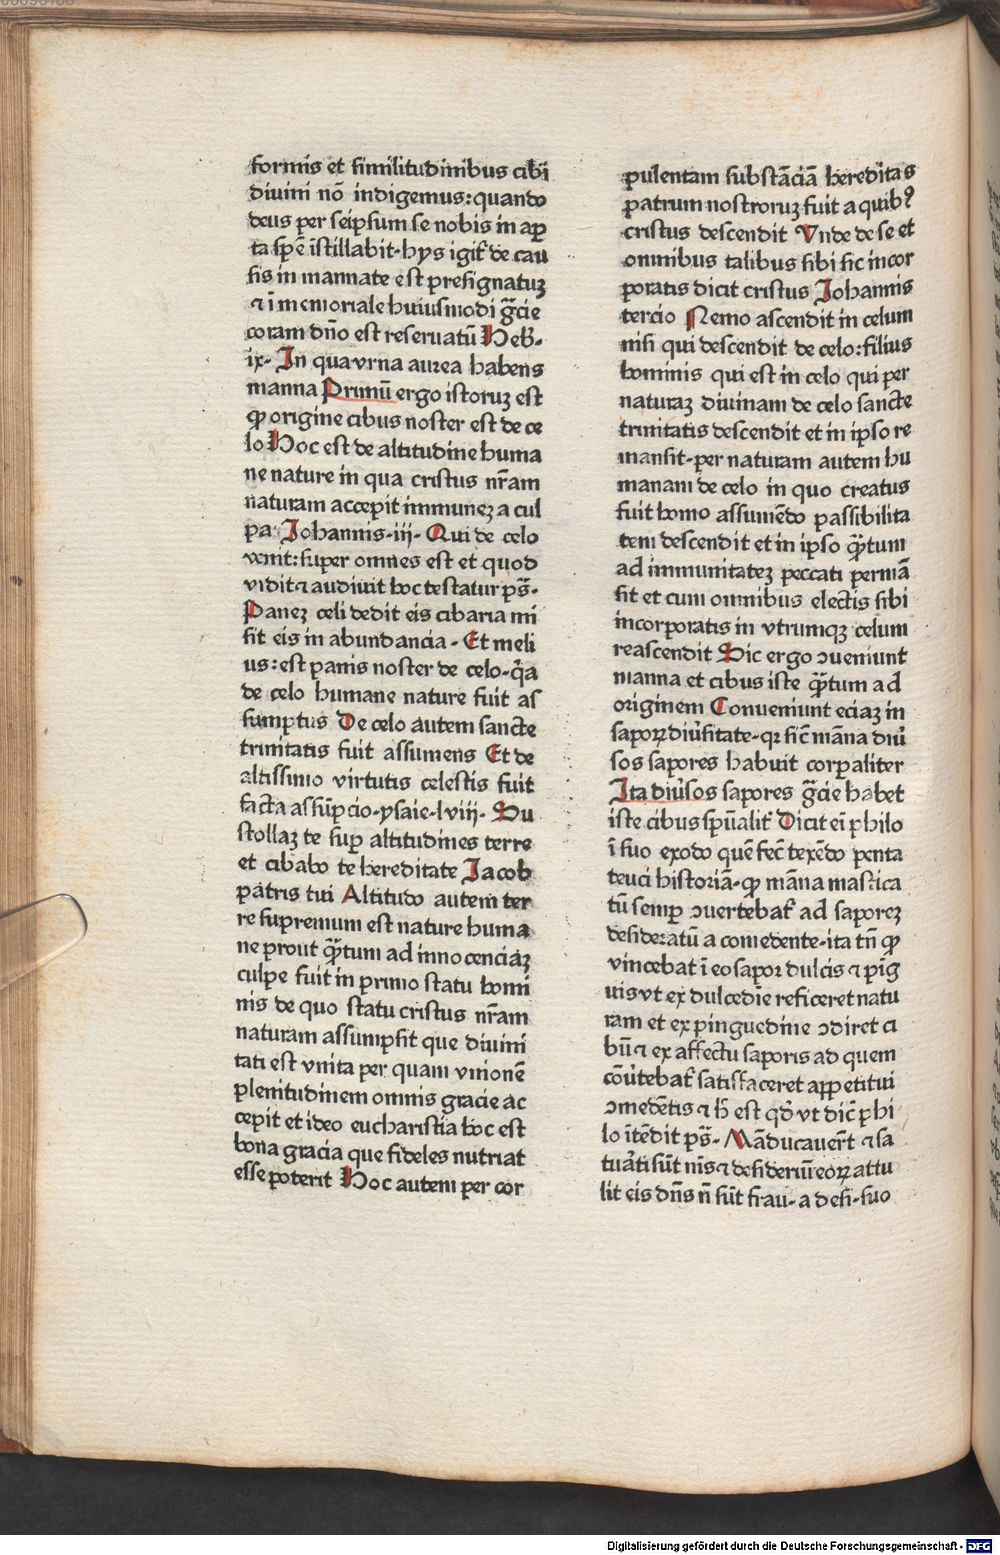 formis et similitudinibus cibi
diuini nō indigemus: quando
deus per seipsum se nobis in aꝑ
ta spē īstillabit· hys igit᷑ de cau
sis in mannate est prefignatuꝫ
⁊ ī memoriale huiusmodi gr̄cie
coram dn̄o est reseruatū Heb̄·
ix· In qua vrna aurea habens
manna Primū ergo istoruꝫ est
ꝙ origine cibus noster est de ce
lo Hoc est de altitudine huma
ne nature in qua cristus nr̄am
naturam accepit immuneꝫ a cul
pa· Johannis·iij· Qui de celo
venit: super omnes est et quod
vidit ⁊ audiuit hoc testatur ps̄·
Paneꝫ celi dedit eis cibaria mi
sit eis in abundancia· Et meli
us: est panis noster de celo· q̄a
de celo humane nature fuit as
sumptus De celo autem sancte
trinitatis fuit assumens Et de
altissimo virtutis celestis fuit
facta assūpcio· ysaie·lviij· Su
stollaꝫ te suꝑ altitudines terre
et cibabo te hereditate Jacob
patris tui Altitudo autem ter
re supremum est nature huma
ne prout qr̄tum ad innocenciaꝫ
culpe fuit in primo statu homi
nis de quo statu cristus nr̄am
naturam assumpsit que diuini
tati est vnita per quam vnionē
plenitudinem omnis gracie ac
cepit et ideo eucharistia hoc est
bona gracia que fideles nutriat
esse poterit Hoc autem per cor
pulentam substāciā hereditas
patrum nostroruꝫ fuit a quibꝰ
cristus descendit Vnde de se et
omnibus talibus sibi sic incor
poratis dicit cristus Johannis
tercio Nemo ascendit in celum
nisi qui descendit de celo: filius
hominis qui est in celo qui per
naturaꝫ diuinam de celo sancte
trinitatis descendit et in ipso re
mansit· per naturam autem hu
manam de celo in quo creatus
fuit homo assumēdo passibilita
tem descendit et in ipso qr̄tum
ad immunitateꝫ peccati permā
sit et cum omnibus electis sibi
incorporatis in vtrumqꝫ celum
reascendit Sic ergo ↄueniunt
manna et cibus iste qr̄tum ad
originem Conueniunt eciaꝫ in
saporꝝ diu̓sitate· qꝛ sic̄ māna diu̓
sos sapores habuit corꝑaliter
Ita diu̓sos sapores gr̄cie habet
iste cibus spūalit᷑ Dicit ei̅ philo
ī suo exodo quē fec̄ texēdo penta
teuci historiā· ꝙ māna mastica
tū semꝑ ↄuertebat᷑ ad saporeꝫ
desideratū a comedente· ita tn̄ ꝙ
vincebat ī eo sapor dulcis ⁊ pīg
uis vt ex dulcedīe reficeret natu
ram et ex pinguedine ↄdiret ci
bū ⁊ ex affectu saporis ad quem
cōu̓tebat᷑ satisfaceret appetitui
ↄmedētis ⁊ h̄ est qd̓ vt dic̄ phi
lo ītēdit ps̄· Māducauer̄t ⁊ sa
tur̄ati sūt nīs ⁊ desideriū eoꝝ attu
lit eis dn̄s n̄ sūt frau· a desi· suo
Digitalisierung gefördert durch die Deutsche Forschungsgemeinschaft - DFG